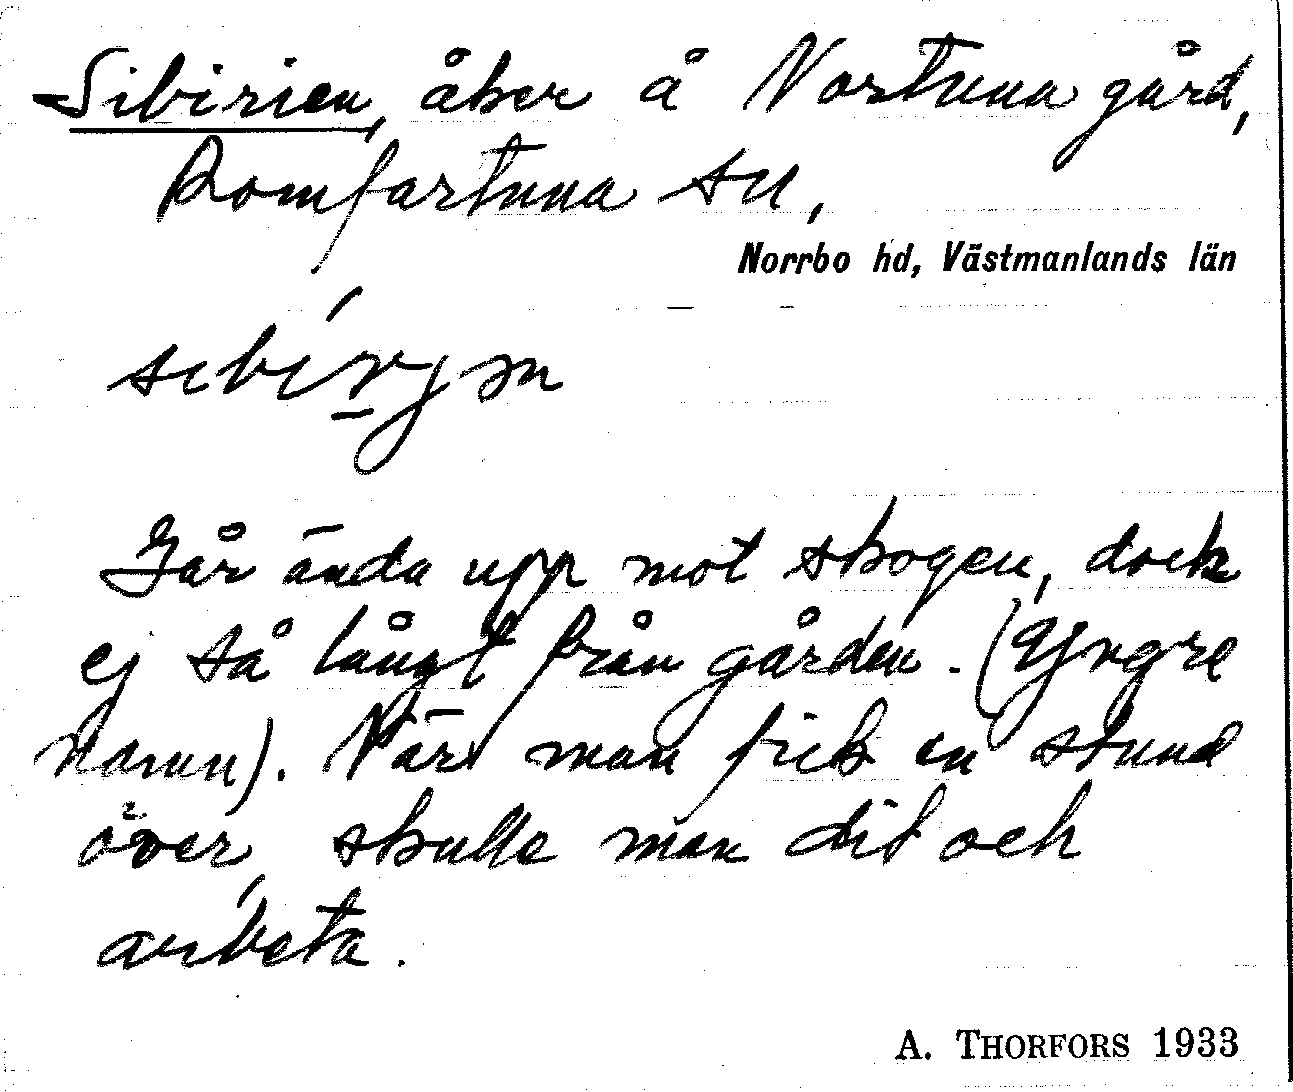 Sibirien, åker å Nortuna gård,
Romfartuna sn,
Norrbo hd, Västmanlands län
Går ända upp mot skogen, dock
ej så långt från gården. (Yngre
namn). När man fick en stund
över, skulle man dit och
arbeta.
A. THORFORS 1933